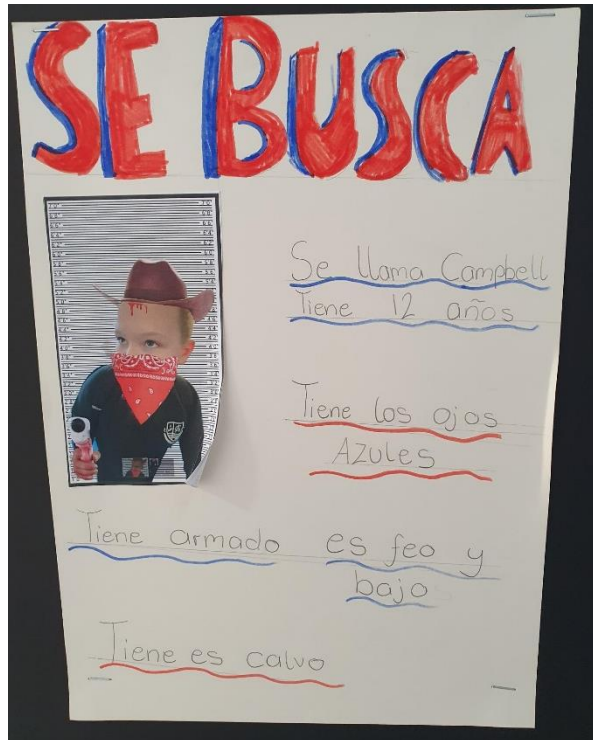 SE BUSCA
Se llama Campbell
Tiene 12 años
Tiene los ojos
AZULES
Tiene armado es feo y
bajo
Tiene es calvo